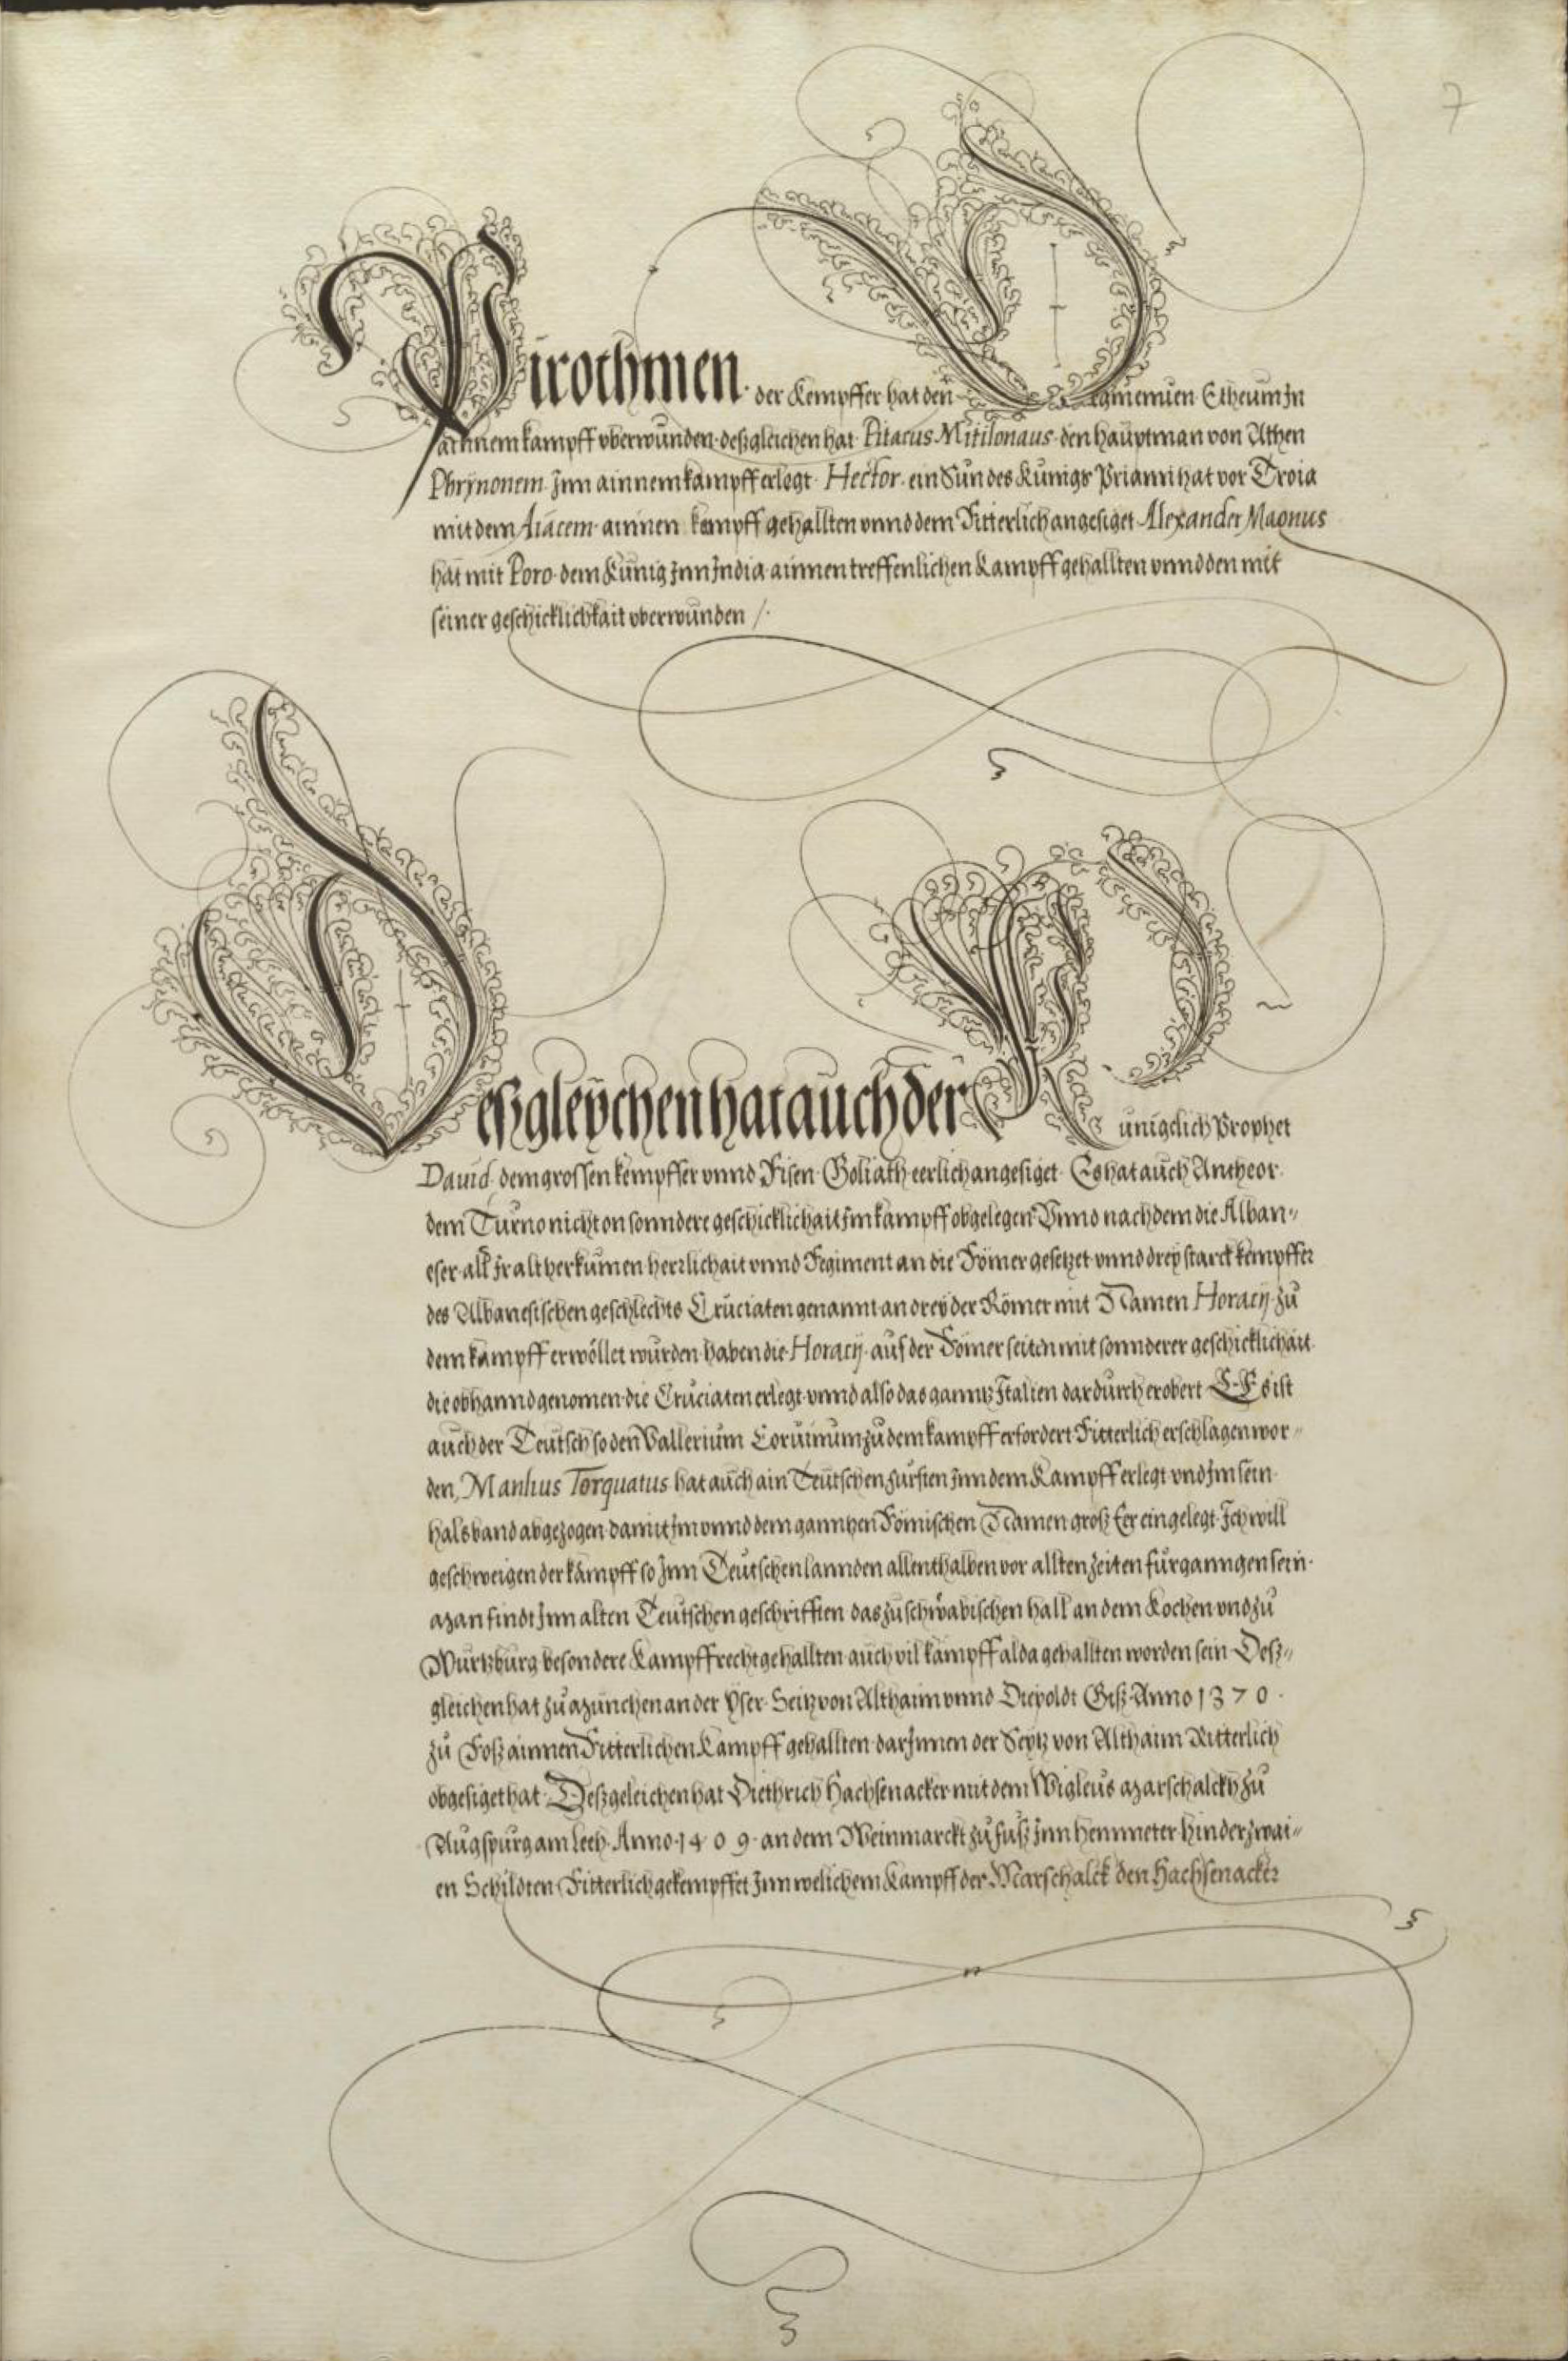 7
Pirothmen. der Kempffer hat den Degmemien Etheum Jn
ainnem kampff vberwunden. deßgleichen hat Pitacus Mitilonaus. den haüptman von Athen
Phrÿnonem Jnn ainnem kampff erlegt. Hector. ein Sun des Künigs Priami hat vor Troia
mit dem Aiacem. ainnen kampff gehallten vnnd dem Ritterlich angesiget Alexander Magnus
hat mit Poro. dem Künig Jnn Jndia ainnen treffenlichen Kampff gehallten vnnd den mit
seiner geschicklichkait vberwunden /.
Deßgleÿchen hat aüch der Künigclich Prophet
Dauid. dem grossen kempffer vnnd Risen Goliath eerlich angesiget. Es hat aüch Antheor.
dem Turno nicht on sonndere geschicklichait Jm kampff obgelegen. Vnnd nach dem die Alban„
eser all Jr alt herkümen herrlichait vnnd Regiment an die Römer gesetzet vnnd dreÿ starck kempffer
des Albanesischen geschlechts Crüciaten genannt an dreÿ der Römer mit Namen Horacij. zü
dem kampff erwöllet würden. haben die Horacij. aüs der Römer seiten mit sonnderer geschicklichait
die obhannd genomen. die Crüciaten erlegt. vnnd also das ganntz Jtalien dardurch erobert Es ist
aüch der Teütsch so den Vallerium Coruinum zü dem kampff erfordert Ritterlich erschlagen wor„
den, Manlius Torquatus hat aüch ain Teütschen fürsten Jnn dem Kampff erlegt vnd Jm sein
halsband abgezogen damit Jm vnnd dem ganntzen Römischen Namen groß Eer eingelegt. Jch will
geschweigen der kämpff so Jnn Teütschen lannden allenthalben vor allten zeiten fürganngen sein.
Man findt Jnn alten Teütschen geschrifften das zü schwäbischen hall an dem Kochen vnd zü
Würtzbürg besondere Kampffrecht gehallten aüch vil kämpff alda gehallten worden sein Deß„
gleichen hat zü München an der Yser. Seitz von Althaim vnnd Diepoldt Giß. Anno 1370.
zü Roß ainnen Ritterlichen Kampff gehallten darJnnen der Seÿtz von Althaim Ritterlich
obgesiget hat. Deßgeleichen hat Diethrich Hachsenacker mit dem Wigleüs Marschalckh zü
Aügspürg am Lech. Anno. 1409. an dem Weinmarckt zü füß Jnn hemmeter hinder zwai„
en Schildten Ritterlich gekempffet Jnn welichem Kampff der Marschalck den Hachsenacker